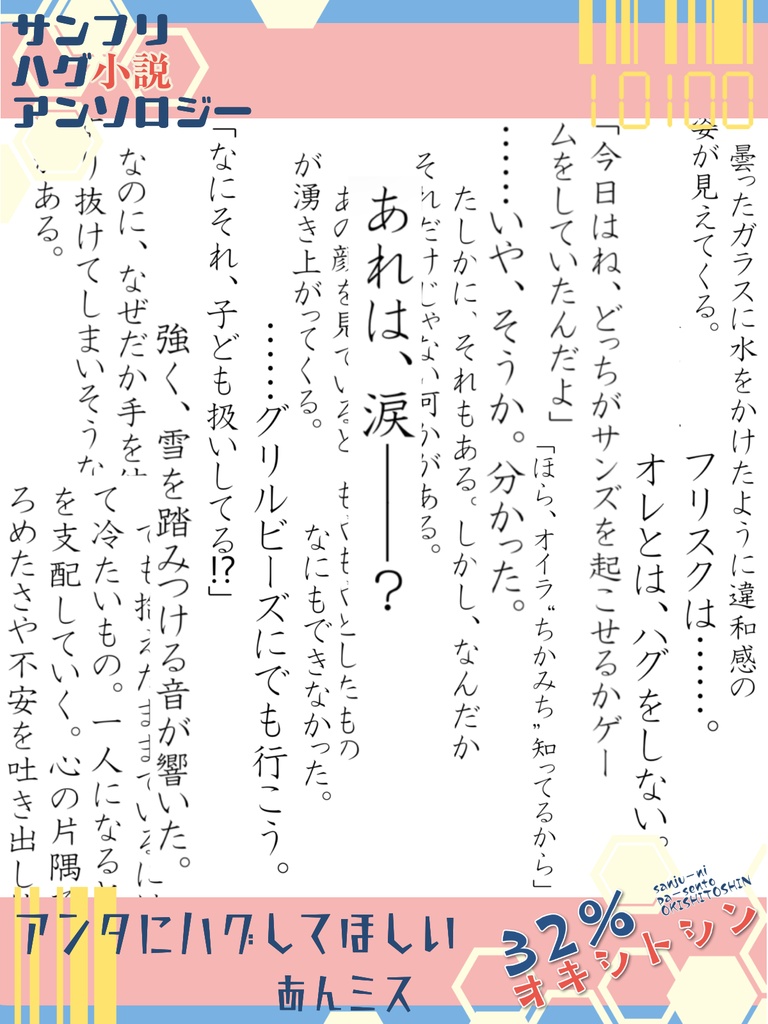 サンフリ
ハグ小説
アンソロジー
10100
曇ったガラスに水をかけたように違和感の
姿が見えてくる。
フリスクは……。
オレとは、ハグをしない。
「今日はね、どっちがサンズを起こせるかゲー
ムをしていたんだよ」
「ほら、オイラ“ちかみち”知ってるから」
……いや、そうか。分かった。
たしかに、それもある。しかし、なんだか
それだけじゃない何かがある。
あれは、涙――？
あの顔を見ていると、もくもくとしたもの
が湧き上がってくる。
なにもできなかった。
……グリルビーズにでも行こう。
「なにそれ、子ども扱いしてる!?」
強く、雪を踏みつける音が響いた。
なのに、なぜだか手を
り抜けてしまいそうな
ある。
でも抱えたままでいるには
て冷たいもの。一人になると
を支配していく。心の片隅
ろめたさや不安を吐き出し
アンタにハグしてほしい
あんミス
sanju-ni
pa-sento
OKISHITOSHIN
32%
オキシトシン